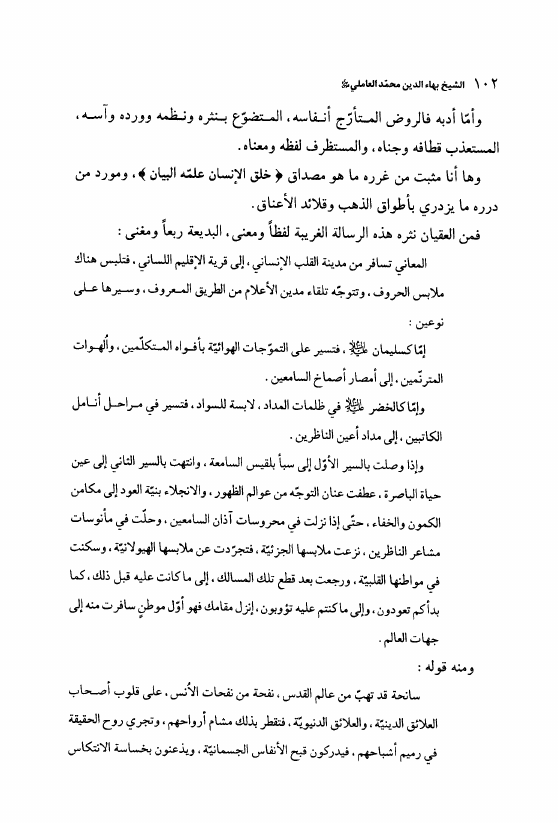 ١٠٢ الشيخ بهاء الدين محمّد العاملي ﷫
وأمّا أدبه فالروض المـتأرّج أنـفاسه، المـتضوّع بـنثره ونـظمه وورده وآسـه،
المستعذب قطافه وجناه، والمستظرف لفظه ومعناه.
وها أنا مثبت من غرره ما هو مصداق ﴿ خلق الإنسان علمّه البيان ﴾، ومورد من
درره ما يزدري بأطواق الذهب وقلائد الأعناق.
فمن العقيان نثره هذه الرسالة الغريبة لفظاً ومعنى، البديعة ربعاً ومغنى :
المعاني تسافر من مدينة القلب الإنساني، إلى قرية الإقليم اللساني، فتلبس هناك
ملابس الحروف، وتتوجّه تلقاء مدين الأعلام من الطريق المـعروف، وسـيرها عـلى
نوعين :
إمّا كسليمان ﵇، فتسير على التموّجات الهوائيّة بأفـواه المـتكلّمين، وألهـوات
المترنّمين، إلى أمصار أصماخ السامعين .
وإمّا كالخضر ﵇ في ظلمات المداد، لابسة للسواد، فتسير في مـراحـل أنـامل
الكاتبين ، إلى مداد أعين الناظرين .
وإذا وصلت بالسير الأوّل إلى سبأ بلقيس السامعة ، وانتهت بالسير الثاني إلى عين
حياة الباصرة ، عطفت عنان التوجّه من عوالم الظهور ، والانجلاء بنيّة العود إلى مكامن
الكمون والخفاء ، حتّى إذا نزلت في محروسات آذان السامعين ، وحلّت في مأنوسات
مشاعر الناظرين ، نزعت ملابسها الجزئيّة ، فتجرّدت عن ملابسها الهيولانيّة ، وسكنت
في مواطنها القلبيّة ، ورجعت بعد قطع تلك المسالك ، إلى ما كانت عليه قبل ذلك، كما
بدأكم تعودون، وإلى ما كنتم عليه تؤوبون ، إنزل مقامك فهو أوّل موطنٍ سافرت منه إلى
جهات العالم .
ومنه قوله :
سانحة قد تهبّ من عالم القدس ، نفحة من نفحات الأنس، على قلوب أصـحاب
العلائق الدينيّة ، والعلائق الدنيويّة ، فتقطر بذلك مشام أرواحهم ، وتجري روح الحقيقة
في رميم أشباحهم ، فيدركون قبح الأنفاس الجسمانيّة ، ويذعنون بخساسة الانتكاس